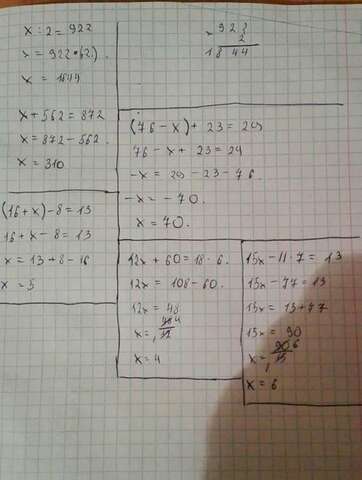 x : 2 = 922
x = 922 · 2
x = 1844
922
2
1844
x + 562 = 872
x = 872 - 562
x = 310
(76 - x) + 23 = 29
76 - x + 23 = 29
-x = 29 - 23 - 76
-x = -70.
x = 70.
(16 + x) - 8 = 13
16 + x - 8 = 13
x = 13 + 8 - 16
x = 5
12x + 60 = 18 · 6
12x = 108 - 60.
12x = 48
x = 48 4 / 12
x = 4
15x - 11 · 7 = 13
15x - 77 = 13
15x = 13 + 77
15x = 90
x = 90 6 / 15
x = 6